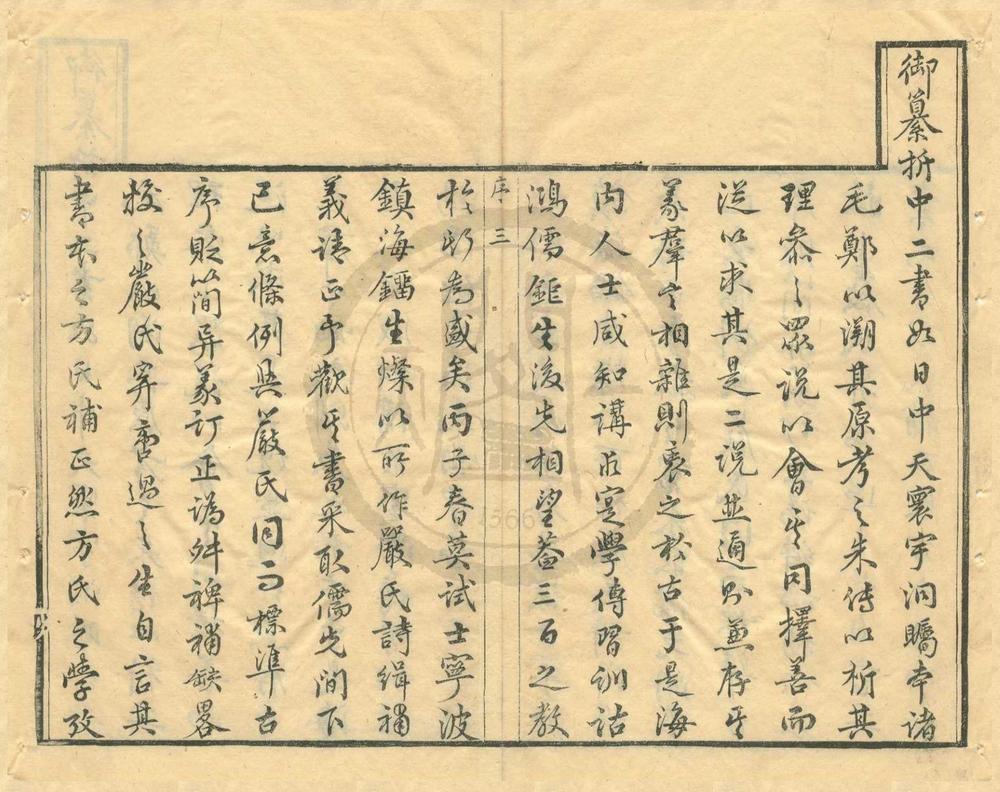 御纂折中二書如日中天寰宇洞矚本諸
毛鄭以溯其原考之朱傳以析其
理參之眾說以會其同擇善而
從以求其是二說並通則兼存其
義羣言相難則衷之於古于是海
內人士咸知講求寔學傳習訓詁
鴻儒鉅生後先相望葢三百之教
序 三
於斯為盛矣丙子春莫試士寧波
鎮海鐂生燦以所作嚴氏詩緝補
義請正予歡其書采取儒先間下
己意條例與嚴氏同而標準古
序貶簡异義訂正譌舛裨補缺畧
按之嚴氏寧密過之生自言其
書本之方氏補正然方氏之學攷